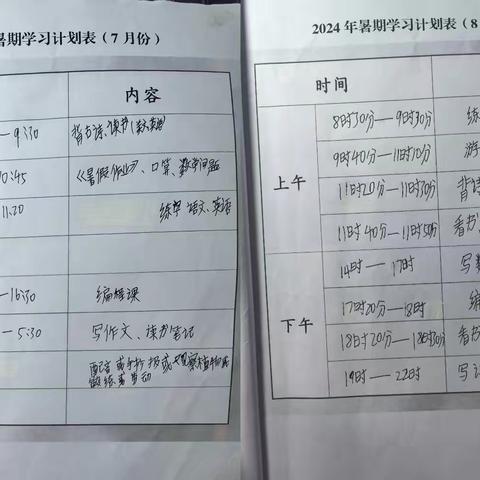 暑期学习计划表（7月份）
内容
—9:30 背古诗、读书
0:45 《暑假作业》、口算、数学问题
11:20 练字 语文、英语
—16:30 编程课
—5:30 写作文、读书笔记
配音或手抄报或观察植物或
锻炼或劳动
2024年暑期学习计划表（8
时间
上午
8时30分—9时30分 练
9时40分—11时10分 游
11时20分—11时30分 背诗
11时40分—11时50分 看书、
下午
14时—17时 写数
17时20分—18时 编
18时20分—18时30分 看书
19时—22时 写